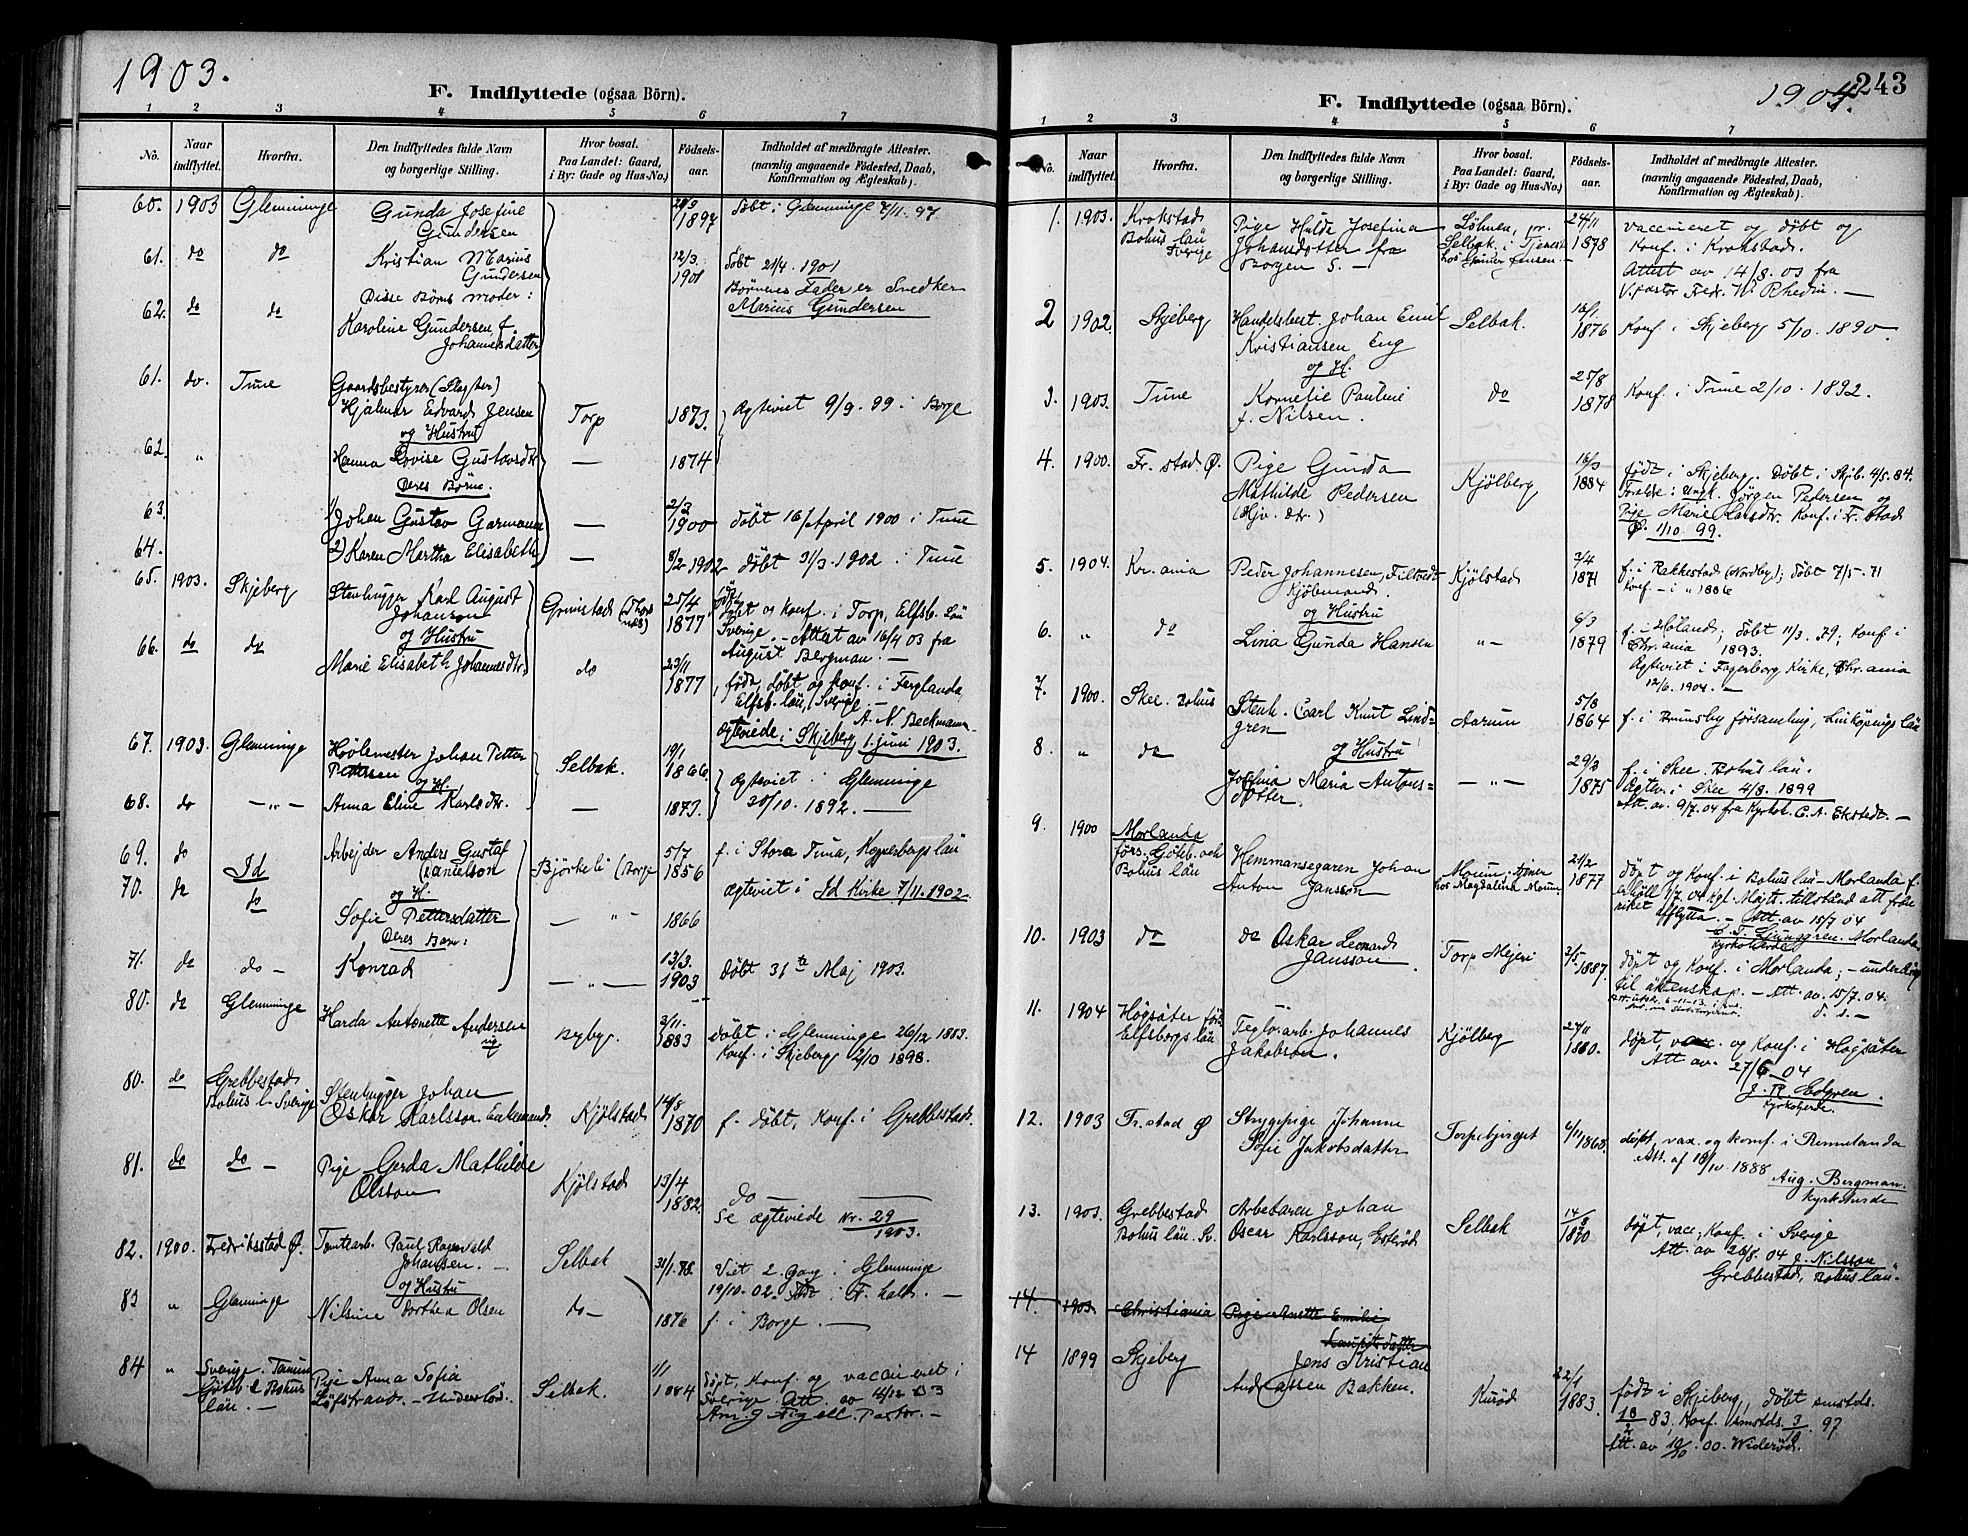 1903.
F. Indflyttede (ogsaa Börn).
1 2 3 4 5 6 7
No.
Naar indflyttet.
Hvorfra.
Den Indflyttedes fulde Navn og borgerlige Stilling.
Hvor bosat. Paa Landet: Gaard, i By: Gade og Hus-No.
Födsels-aar.
Indholdet af medbragte Attester. (navnlig angaaende Födested, Daab, Konfirmation og Ægteskab).
60. 1903 Glemminge Gunda Josefine Gundersen 1897 Döbt i Glemminge 7/11. 97.
61. do do Kristian Marius Gundersen 12/3. 1901 Döbt 21/4. 1901
Disse Börns moder: Börnenes Fader er Snedker
62. do do Karoline Gundersen f. Johannesdatter Marius Gundersen
61. do. Tune Gaardsbestyrer (Slagter) Hjalmar Edvard Jensen Torp 1873. Ægteviet 9/9. 99 i Borge
og Hustru
62. " Hanna Lovise Gustavsdtr — 1874
Deres Börn.
63. 1) Johan Gustav Germann — 2/3 1900 Döbt 16/April 1900 i Tune
64. 2) Karen Martha Elisabeth — 8/2 1902 Döbt 31/3. 1902 i Tune
65. 1903. Skjeberg Stenhugger Karl August Johanson Grimstad 25/4 1877 Döbt og Konf. i Torp, Elfsb. Län Sverige. – Attest av 16/4 03 fra August Bergman. —
og Hustru
66. do do Marie Elisabeth Johannesdtr. do 23/11 1877 född, döbt og konf. i Ferglanda, Elfsb. län, Sverige. – A. N. Beckmann
ægteviede i Skjeberg 1. juni 1903.
67. 1903. Glemminge Hövlemester Johan Petter Pettersen Selbak. 19/1 1866 Ægteviet i Glemminge
og H.
68. do —"— Anna Eline Karlsdtr. — 1873. 28/10. 1892. —
69. do Id Arbejder Anders Gustaf Danielson Björkeli (Borge 5/7 1856 f. i Stora Tuna, Kopperbergs län
og H.
70. do do Sofie Pettersdatter — " — 1866 ægteviet i Id Kirke 7/11. 1902.
Deres Barn:
71. do do — Konrad — " — 13/3. 1903 Döbt 31te Maj 1903.
80. do Glemminge Harda Antonette Andersen Nybyg. 3/11. 1883 Döbt i Glemminge 26/12 1883. Konf. i Skjeberg 2/10 1898.
80. do Grebbestad Bohus l. Sverige Stenhugger Johan Oskar Karlsson, Enkemand Kjölstad 14/8 1870 f. Döbt, Konf. i Grebbestad.
81. do do — Pige Gerda Mathilde Olsson Kjölstad 13/4 1882. do —
Se ægteviede Nr. 29 1903.
82. 1900. Fredriksstad Ø. Tomtearb. Paul Ragnvald Johansen. — Selbak 31/1. 78 Viet 2. Gang i Glemminge
og Hustru 19/10. 02.
83 " Glemminge Nilsine Dorthea Olsen do — 1876 f. i Borge. —
84 " Sverige. Göteb. & Bohus län. — Pige Anna Sofia Löfstrand. – Selbak. 1/1 1884 Döpt, Konf. og vaccineret i Sverige Att av Pastor. –
243
1904.
F. Indflyttede (ogsaa Börn).
1 2 3 4 5 6 7
No.
Naar indflyttet.
Hvorfra.
Den Indflyttedes fulde Navn og borgerlige Stilling.
Hvor bosat. Paa Landet: Gaard, i By: Gade og Hus-No.
Födsels-aar.
Indholdet af medbragte Attester. (navnlig angaaende Födested, Daab, Konfirmation og Ægteskab).
1. 1903. Krokstad Bohus län Sverige Pige Hulda Josefina Johansdotter fra Borgen S. — Selbak. i Tjenest hos 24/11 1878 vaccineret og döbt og Konf. i Krokstad. Attest av 14/8. 03 fra V. pastor Fredr. W. Rhedin. —
2 1902. Skjeberg Handelsbest. Johan Emil Kristiansen Eng Selbak. 16/1. 1876 Konf. i Skjeberg 5/10. 1890.
og H.
3. 1903. Tune Kornelie Pauline f. Nilsen. do 25/8 1878 Konf. i Tune 2/10. 1892.
4. 1900. Fr. stad Ø. Pige Gunda Mathilde Pedersen Kjölberg 16/3 1884 född i Skjeberg. Döbt i Skjb. 4/5. 84. Forældre: Ungk. Jörgen Pedersen og Pige Marie Larsdtr. Konf. i Fr. stad Ø. 1/10. 99.
5. 1904. Kr. ania Peder Johannesen, Filtvedt Kjöbmand. Kjölstad 2/4 1871 f. i Rakkestad (Nordby); döbt 7/5. 71 Konf. – i " 1886
og Hustru
6. " do Lina Gunda Hansen "– 6/3 1879 f. i Höland; döbt 11/3. 79; konf i Chr. ania 1893. Ægteviet i Fagerborg Kirke, Chr. ania 12/6. 1904. –
7. 1900. Skee. Bohus Stenh. Carl Knut Lindgren Aarum 5/8 1864 f. i Brunsby församling, Linköpings län
og Hustru
8. " do Josefina Maria Antonsdotter. — " — 29/3 1875 f. i Skee. Bohus län. Ægtev. i Skee 4/3. 1899 Att. av. 9/7. 04 fra Kyrkoh. C. A. Ekstedt. —
9. 1900 Morlanda förs. Göteb. och Bohus län Hemmansegaren Johan Anton Jansson Moum, tjener hos Magdalina Moum 21/2 1877 döpt og Konf. i Bohus län – Morlanda f. Erhöll 1/7. 04 Kgl. Majts. tillstånd att från riket afflytta. – Att. av 15/7 04 Ljunggren. Morlanda Kyrkoherde
10. 1903 do do Oskar Leonard Jansson Torp Mejeri 2/5 1887. döpt og Konf. i Morlanda; – til äktenskap. – Att. av. 15/7. 04. d. s. —
11. 1904 Högsäter förs. Elfsborgs län Teglv.arb. Johannes Jakobson. Kjölberg 24/11 1880. döpt, vacc. og Konf. i Högsäter Att av. 27/6 – 04 Edgren. Kyrkoherde.
12. 1903 Fr. stad Ø Strygepige Johanne Sofie Jakobsdatter Torpebjerget 6/11 1868. döpt, vax. og konf. i Rennelanda Att. af 10/10. 1888 Aug. Bergman. Kyrkoherde
13. 1903. Grebbestad Bohus län. Sv. Arbetaren Johan Oscar Karlsson, Selbak 14/8 1870 döpt, vacc, Konf. i Sverige Att. av 26/8. 04 J. Nilsson Grebbestad, Bohus län.
14. 1903. Christiania Pige Anette Emilie Lauritsdatter
14 1899 Skjeberg Jens Kristian Andreassen Bakken. Kuröd 22/1 1883. född i Skjeberg, döbt smstds. 18/2 83, Konf. smstds. 97 Att. av 00. Wideröd.